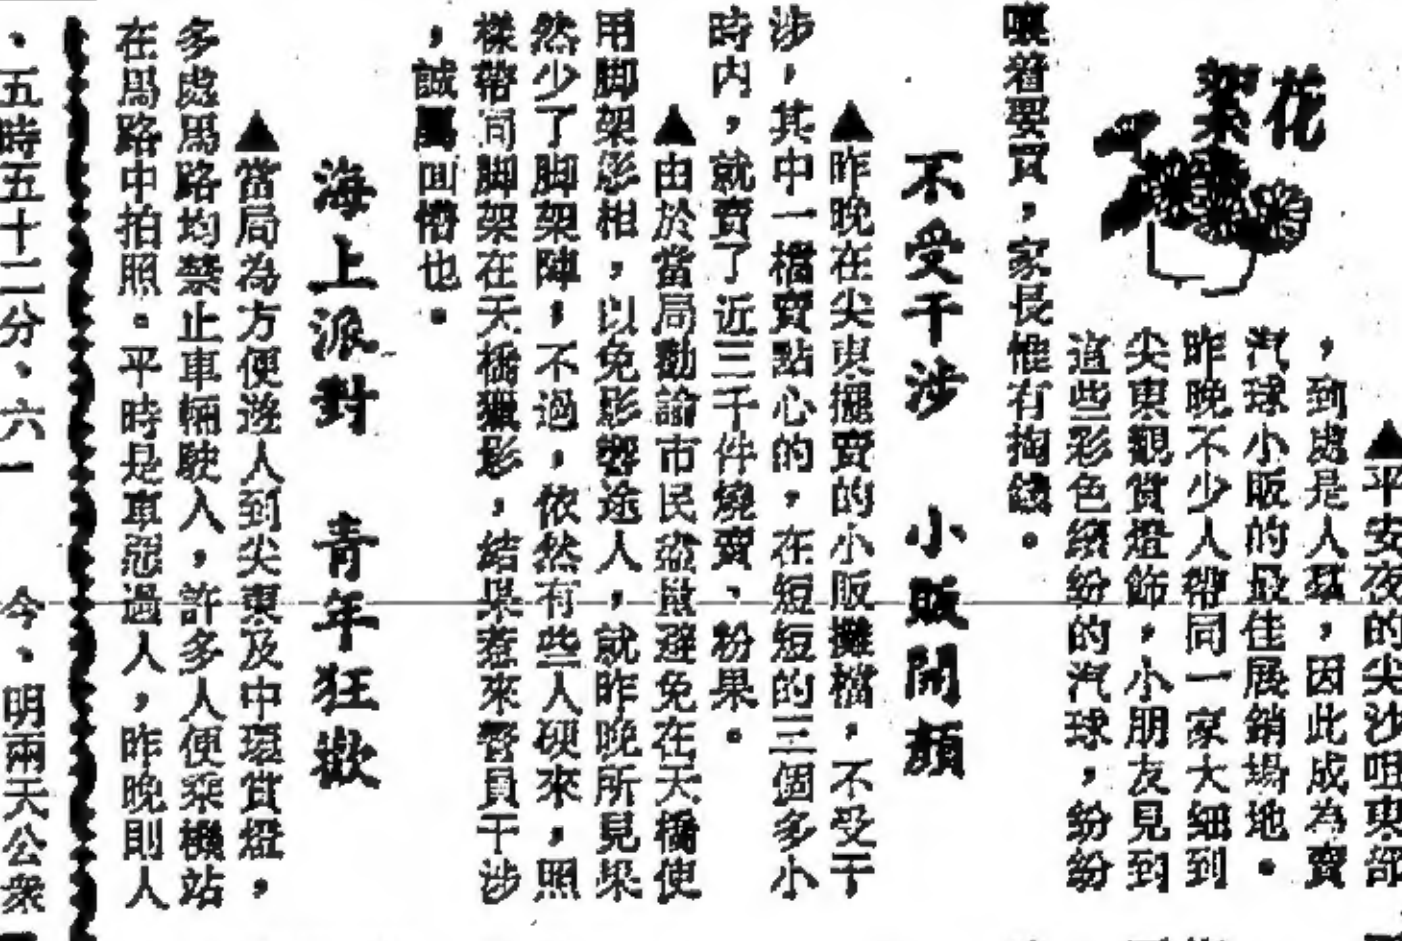 花絮
▲平安夜的尖沙咀東部
，到處是人羣，因此成為賣
汽球小販的最佳展銷場地。
昨晚不少人帶同一家大細到
尖東觀賞燈飾，小朋友見到
這些彩色繽紛的汽球，紛紛
嚷着要買，家長惟有掏錢。
不受干涉　小販開顏
▲昨晚在尖東擺賣的小販攤檔，不受干
涉，其中一檔賣點心的，在短短的三個多小
時內，就賣了近三千件燒賣、粉果。
▲由於當局勸諭市民盡量避免在天橋使
用脚架影相，以免影響途人，就昨晚所見果
然少了脚架陣，不過，依然有些人硬來，照
樣帶同脚架在天橋獵影，結果惹來警員干涉
，誠屬回憎也。
海上派對　青年狂歡
▲當局為方便遊人到尖東及中環賞燈，
多處馬路均禁止車輛駛入，許多人便乘機站
在馬路中拍照。平時是車惡過人，昨晚則人
、五時五十二分、六
今、明兩天公衆